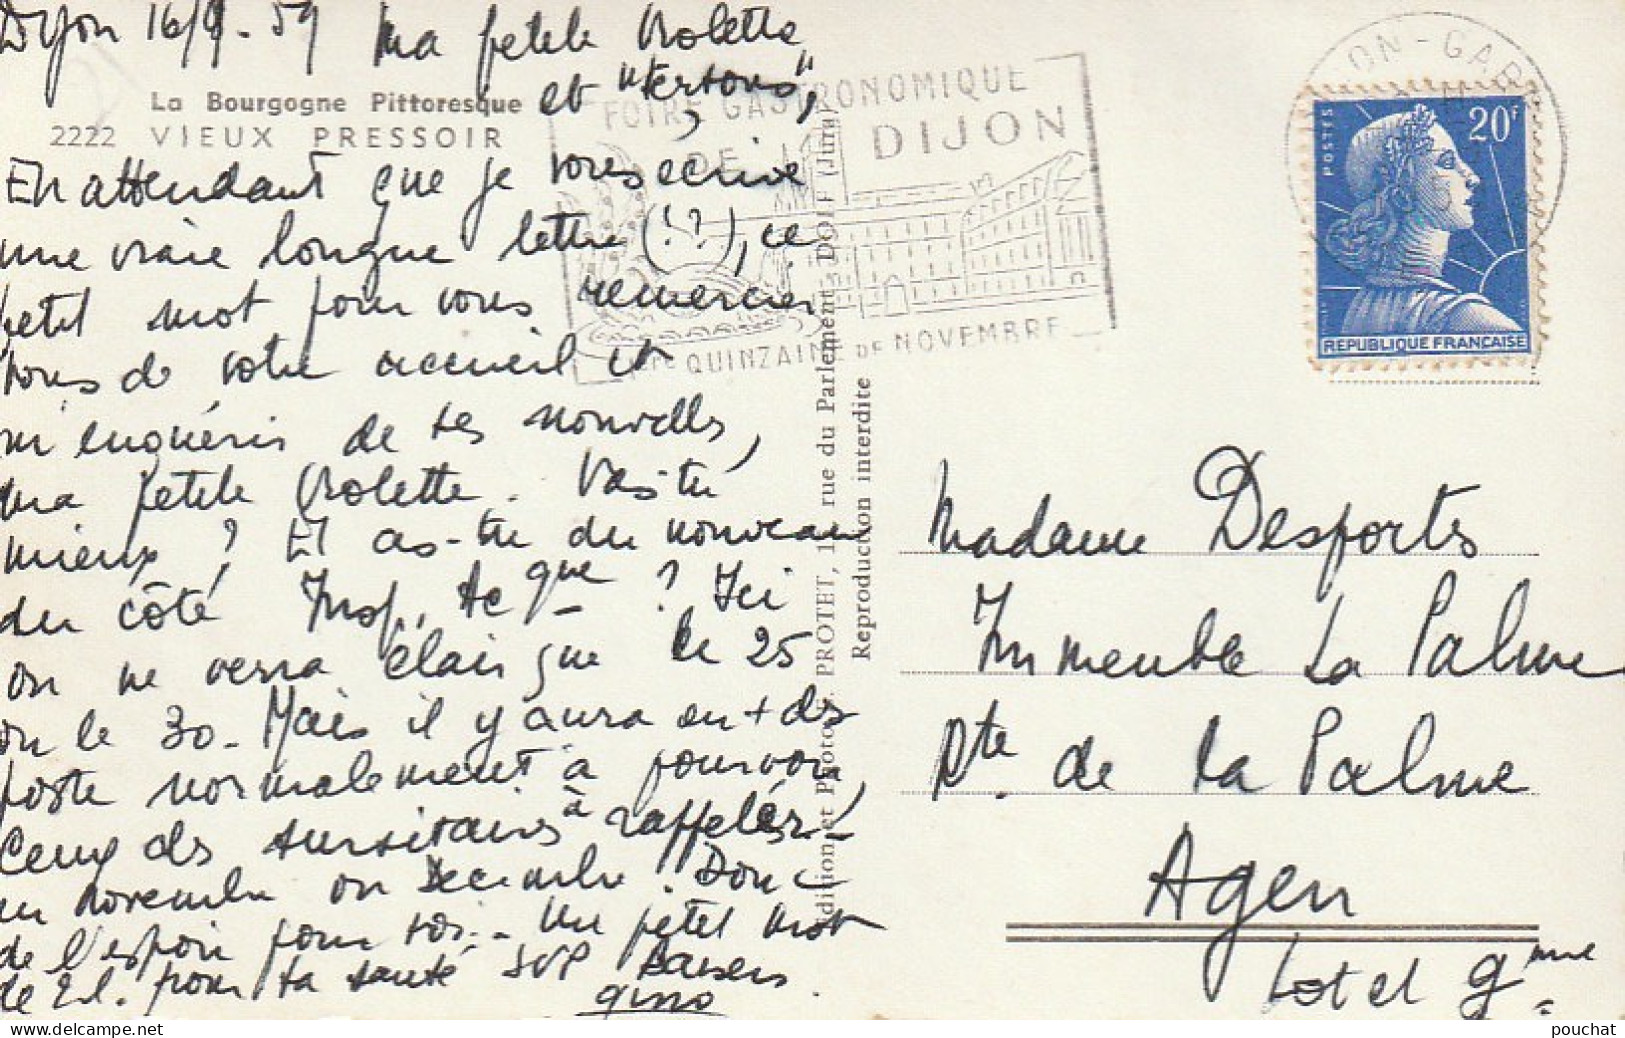 Dijon 16/9-59 Ma petite Violette
et "tertous",
La Bourgogne Pittoresque
2222 VIEUX PRESSOIR
En attendant que je vous écrive
une vraie longue lettre (!?), ce
petit mot pour vous remercier
tous de votre accueil et
m'enquérir de tes nouvelles,
ma petite Violette. Vas-tu
mieux ? Et as-tu du nouveau
du côté Insp. Ac que ? Ici
on ne verra clair que le 25
ou le 30. Mais il y aura en + des
poste normalement à pourvoir,
ceux des sursitaires à rappeler
en novembre ou Décembre. Donc
de l'espoir pour toi. - Un petit mot
de pour ta santé SVP Baisers
gino
FOIRE GASTRONOMIQUE
DE DIJON
1ère QUINZAINE DE NOVEMBRE
Edition et Photo PROTET, 1 rue du Parlement, DOLE (Jura)
Reproduction interdite
DIJON-GARE
POSTES
20F
REPUBLIQUE FRANÇAISE
Madame Desportes
Immeuble La Palme
Rte de la Palme
Agen
Lot et Gnne
pouchat